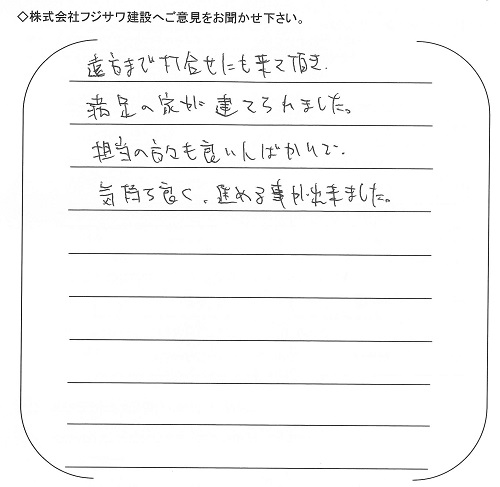 ◇株式会社フジサワ建設へご意見をお聞かせ下さい。
遠方まで打合せにも来て頂き、
満足の家が建てられました。
担当の方々も良い人ばかりで、
気持ち良く、進める事が出来ました。